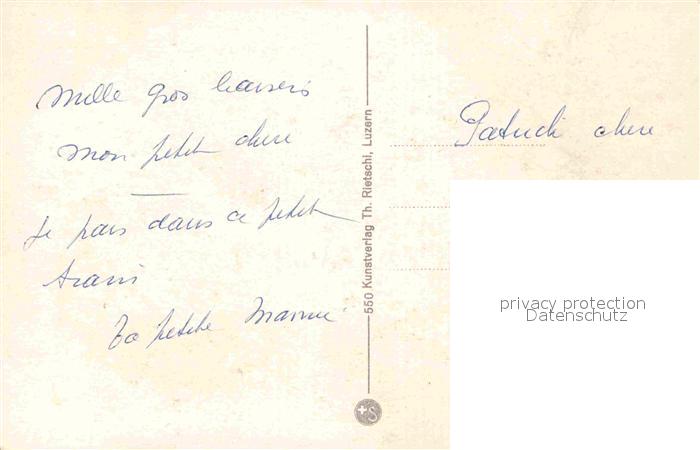 Mille gros baisers
mon petit chere
Je pars dans ce petit
train
Ta petite Mamie
550 Kunstverlag Th. Rietschi, Luzern
chere
privacy protection
Datenschutz